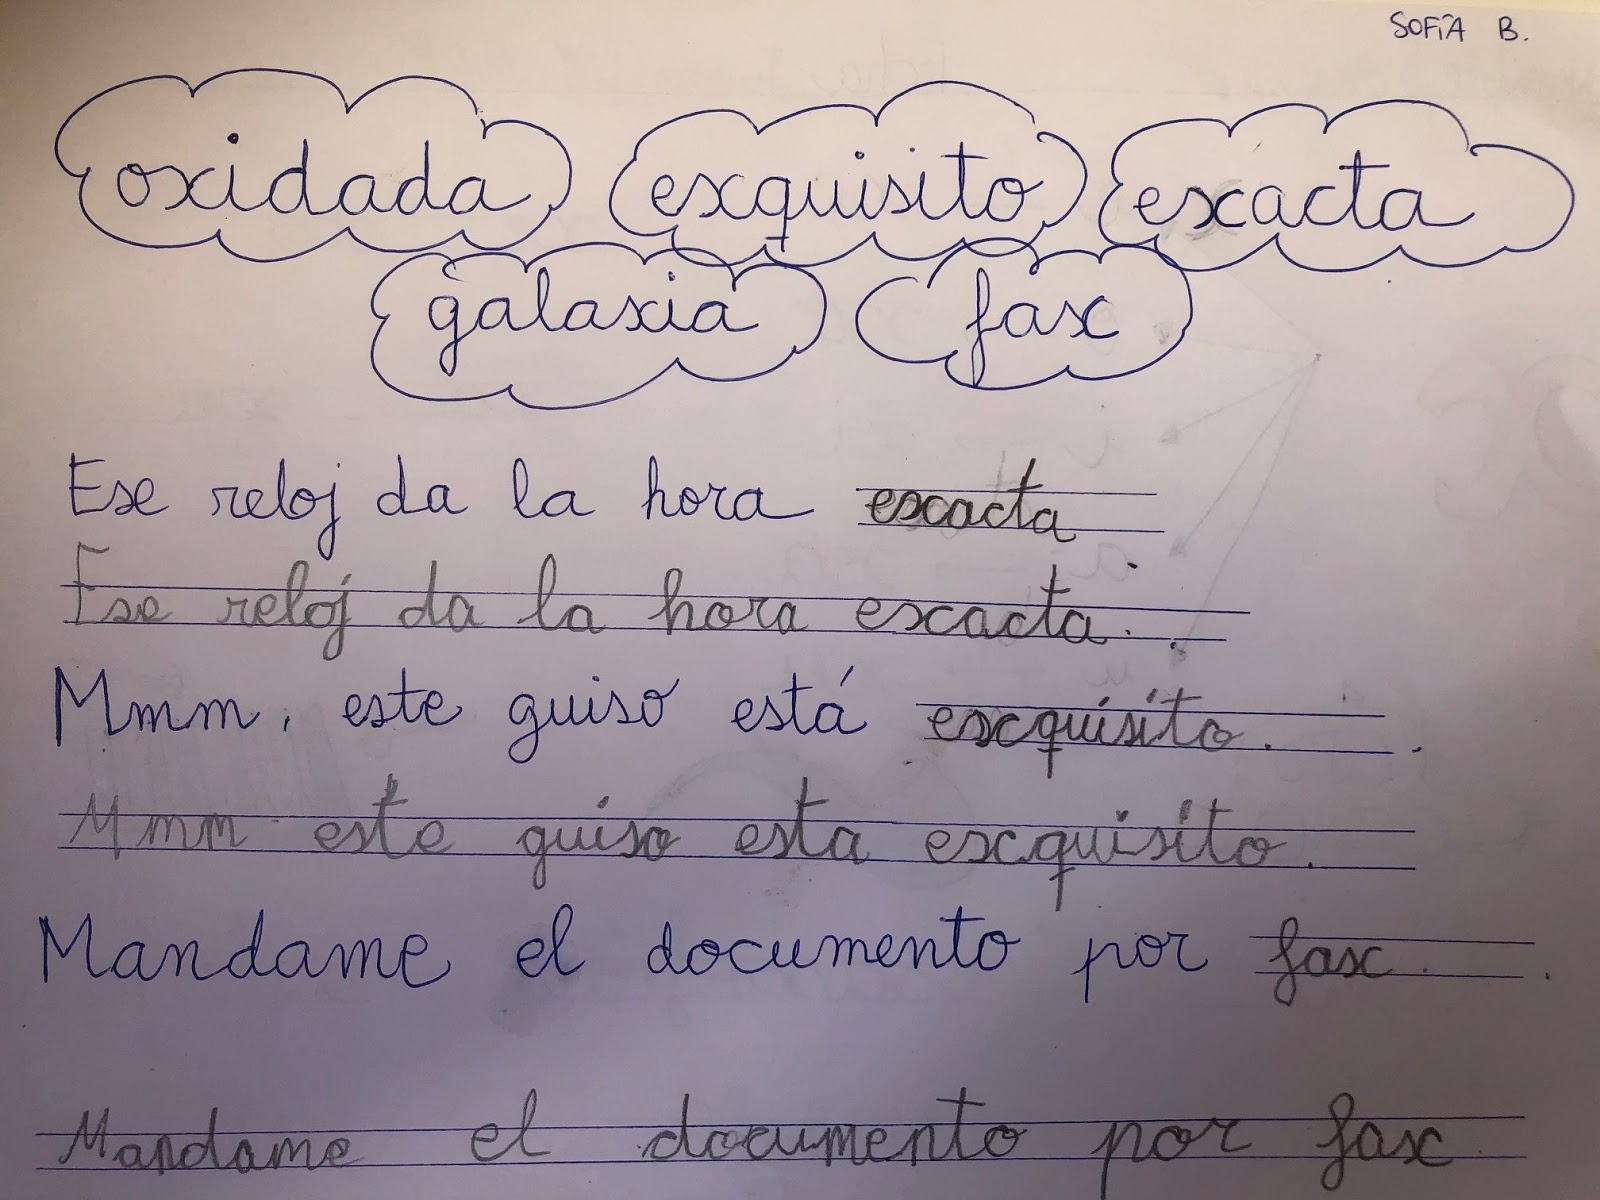 SOFÍA B.
oxidada exquisito exacta
galaxia fax
Ese reloj da la hora exacta.
Ese reloj da la hora exacta.
Mmm, este guiso está exquisito. .
Mmm este guiso esta exquisito.
Mandame el documento por fax. .
Mandame el documento por fax